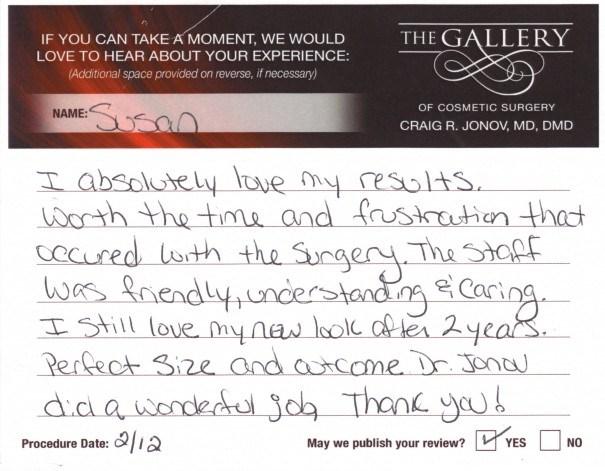 IF YOU CAN TAKE A MOMENT, WE WOULD
LOVE TO HEAR ABOUT YOUR EXPERIENCE:
(Additional space provided on reverse, if necessary)
NAME: Susan
THE GALLERY
OF COSMETIC SURGERY
CRAIG R. JONOV, MD, DMD
I absolutely love my results.
Worth the time and frustration that
occured with the Surgery. The Staff
was friendly, understanding & Caring.
I Still love my new look after 2 years.
Perfect Size and outcome Dr. Jonov
did a wonderful job Thank you!
Procedure Date: 2/12
May we publish your review? ☑ YES ☐ NO